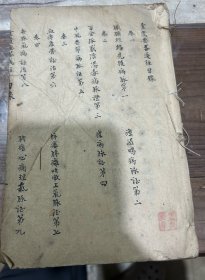 金匱要畧淺註目錄
卷一
臟腑經絡先後病脉第一
痙濕暍病脉証第二
卷二
百合狐惑陰陽毒病脉證第三
瘧病脉証第四
中風歷節病脉証第五
卷三
血痺虛勞脉証第六
肺痿肺癰咳嗽上氣脉証第七
卷四
奔豚氣病脉証第八
胸痺心痛短氣脉証第九